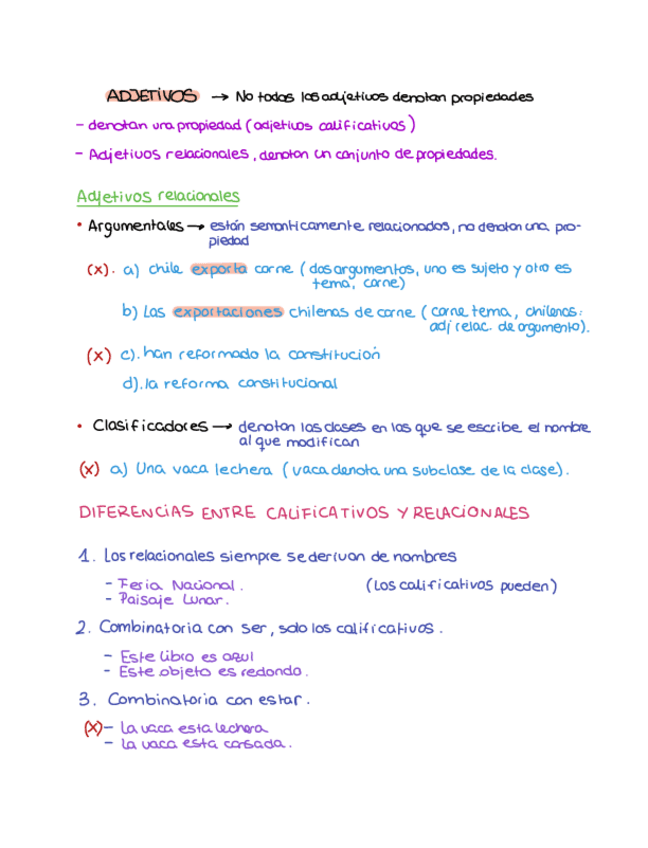 ADJETIVOS → No todos los adjetivos denotan propiedades
- denotan una propiedad (adjetivos calificativos)
- Adjetivos relacionales, denotan un conjunto de propiedades.
Adjetivos relacionales
• Argumentales → están semánticamente relacionados, no denotan una pro-
piedad
(x). a) chile exporta carne (dos argumentos, uno es sujeto y otro es
tema, carne)
b) Las exportaciones chilenas de carne (carne tema, chilenas:
adj relac. de argumento).
(x) c). han reformado la constitución
d). la reforma constitucional
• Clasificadores → denotan las clases en las que se escribe el nombre
al que modifican
(x) a) Una vaca lechera (vaca denota una subclase de la clase).
DIFERENCIAS ENTRE CALIFICATIVOS Y RELACIONALES
1. Los relacionales siempre se derivan de nombres
- Feria Nacional. (Los calificativos pueden)
- Paisaje Lunar.
2. Combinatoria con ser, solo los calificativos.
- Este libro es azul
- Este objeto es redondo.
3. Combinatoria con estar.
(x) - La vaca esta lechera
- La vaca esta cansada.